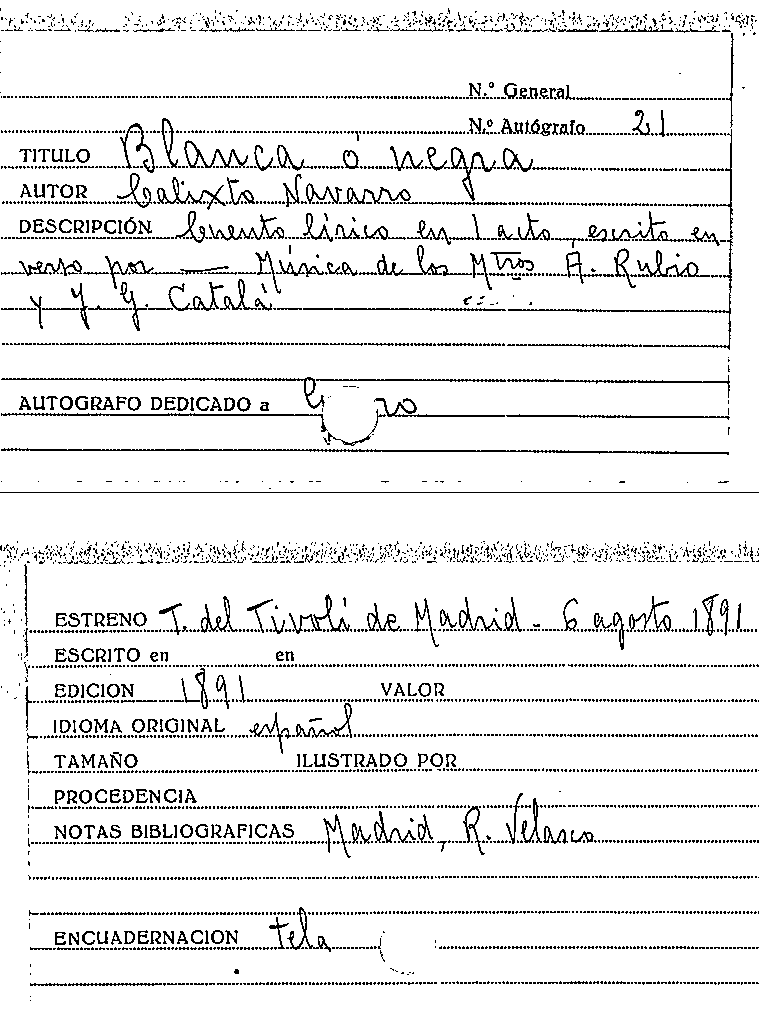 N.º General
N.º Autógrafo 21
TITULO Blanca ó negra
AUTOR Calixto Navarro
DESCRIPCIÓN Cuento lírico en 1 acto, escrito en
verso por — Música de los Mtros A. Rubio
y J. G. Catalá
AUTOGRAFO DEDICADO a
ESTRENO T. del Tívoli de Madrid - 6 agosto 1891
ESCRITO en en
EDICION 1891 VALOR
IDIOMA ORIGINAL español
TAMAÑO ILUSTRADO POR
PROCEDENCIA
NOTAS BIBLIOGRAFICAS Madrid, R. Velasco
ENCUADERNACION tela